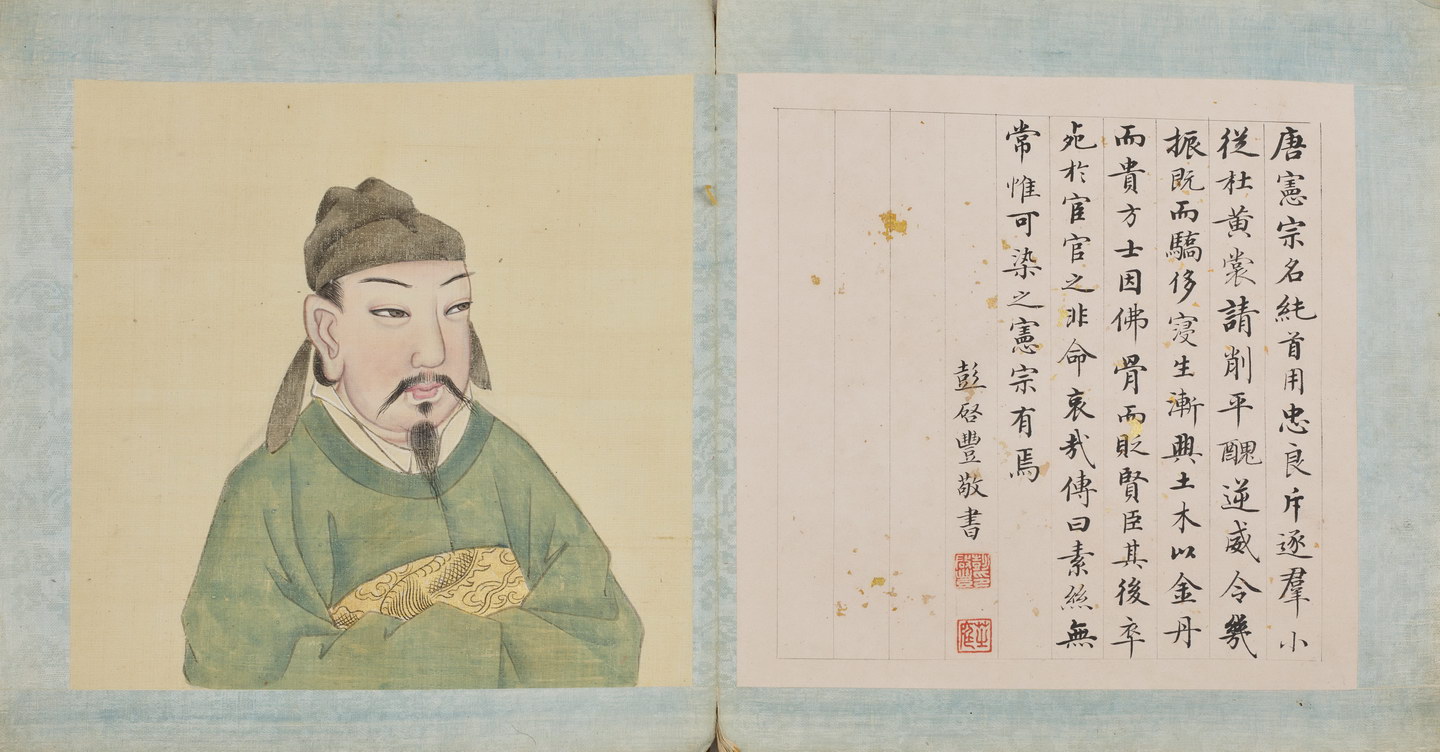 唐憲宗名純首用忠良斥逐羣小
従杜黃裳請削平醜逆威令幾
振既而驕侈寖生漸興土木以金丹
而貴方士因佛骨而貶賢臣其後卒
𣦸於宦官之非命哀㢤傳曰素絲無
常惟可染之憲宗有焉
彭启豐敬書